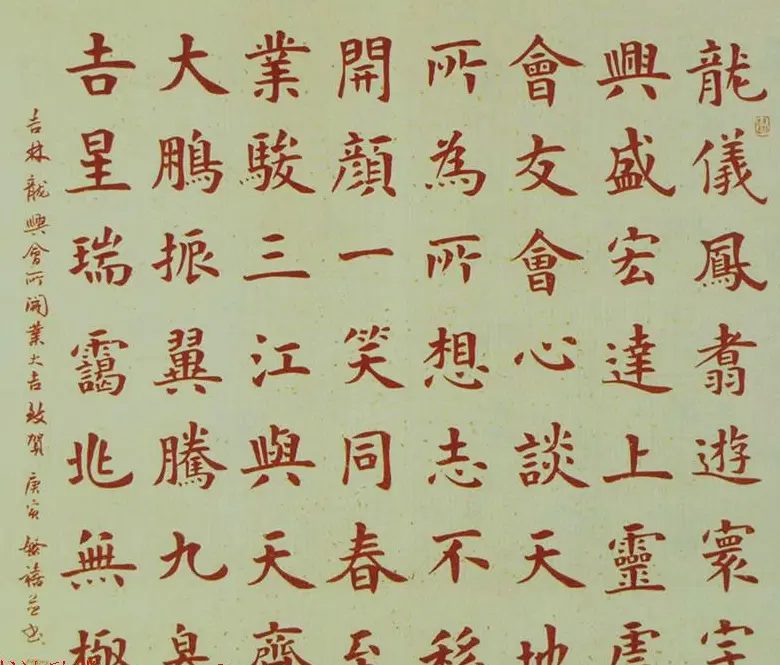 龍儀鳳翥遊寰宇
興盛宏達上靈
會友會心談天地
所為所想志不移
開顏一笑同春至
業駿三江與天齊
大鵬振翼騰九
吉星瑞靄兆無極
吉林龍興會所開業大吉致賀 庚寅